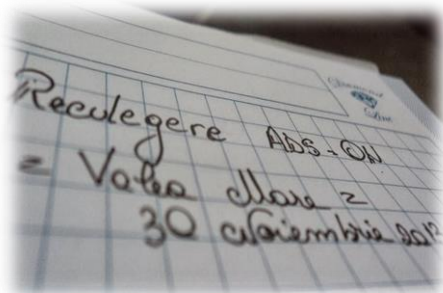 Reculegere ADS-ON
= Valea Mare =
30 Noiembrie 2012